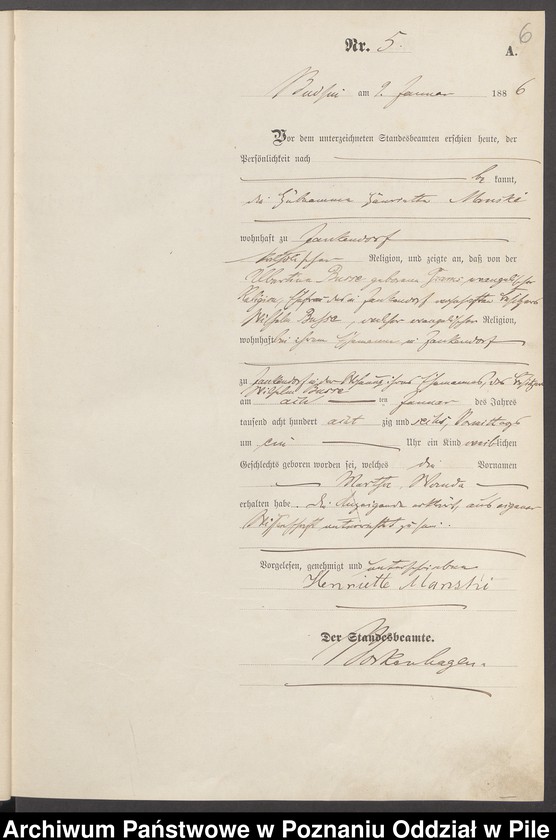 6
Nr. 5.
A.
Budsin am 9. Januar 1886
Vor dem unterzeichneten Standesbeamten erschien heute, der
Persönlichkeit nach
be kannt,
die Hebamme Henriette Manski
wohnhaft zu Jankendorf
katholischer Religion, und zeigte an, daß von der
Albertine Busse geborene evangelischer
Religion, Ehefrau des in Jankendorf wohnhaften Besitzers
Wilhelm Busse, welcher evangelischer Religion,
wohnhaft bei ihrem Ehemanne in Jankendorf
zu Jankendorf in der Behausung ihres Ehemannes, des Besitzers
Wilhelm Busse
am acht ten Januar des Jahres
tausend acht hundert acht zig und sechs, Vormittags
um ein Uhr ein Kind weiblichen
Geschlechts geboren worden sei, welches die Vornamen
Martha Wanda
erhalten habe. Die Anzeigende erklärt, aus eigener
Wissenschaft unterrichtet zu sein.
Vorgelesen, genehmigt und unterschrieben
Henriette Manski
Der Standesbeamte.
Borkenhagen.
Archiwum Państwowe w Poznaniu Oddział w Pile